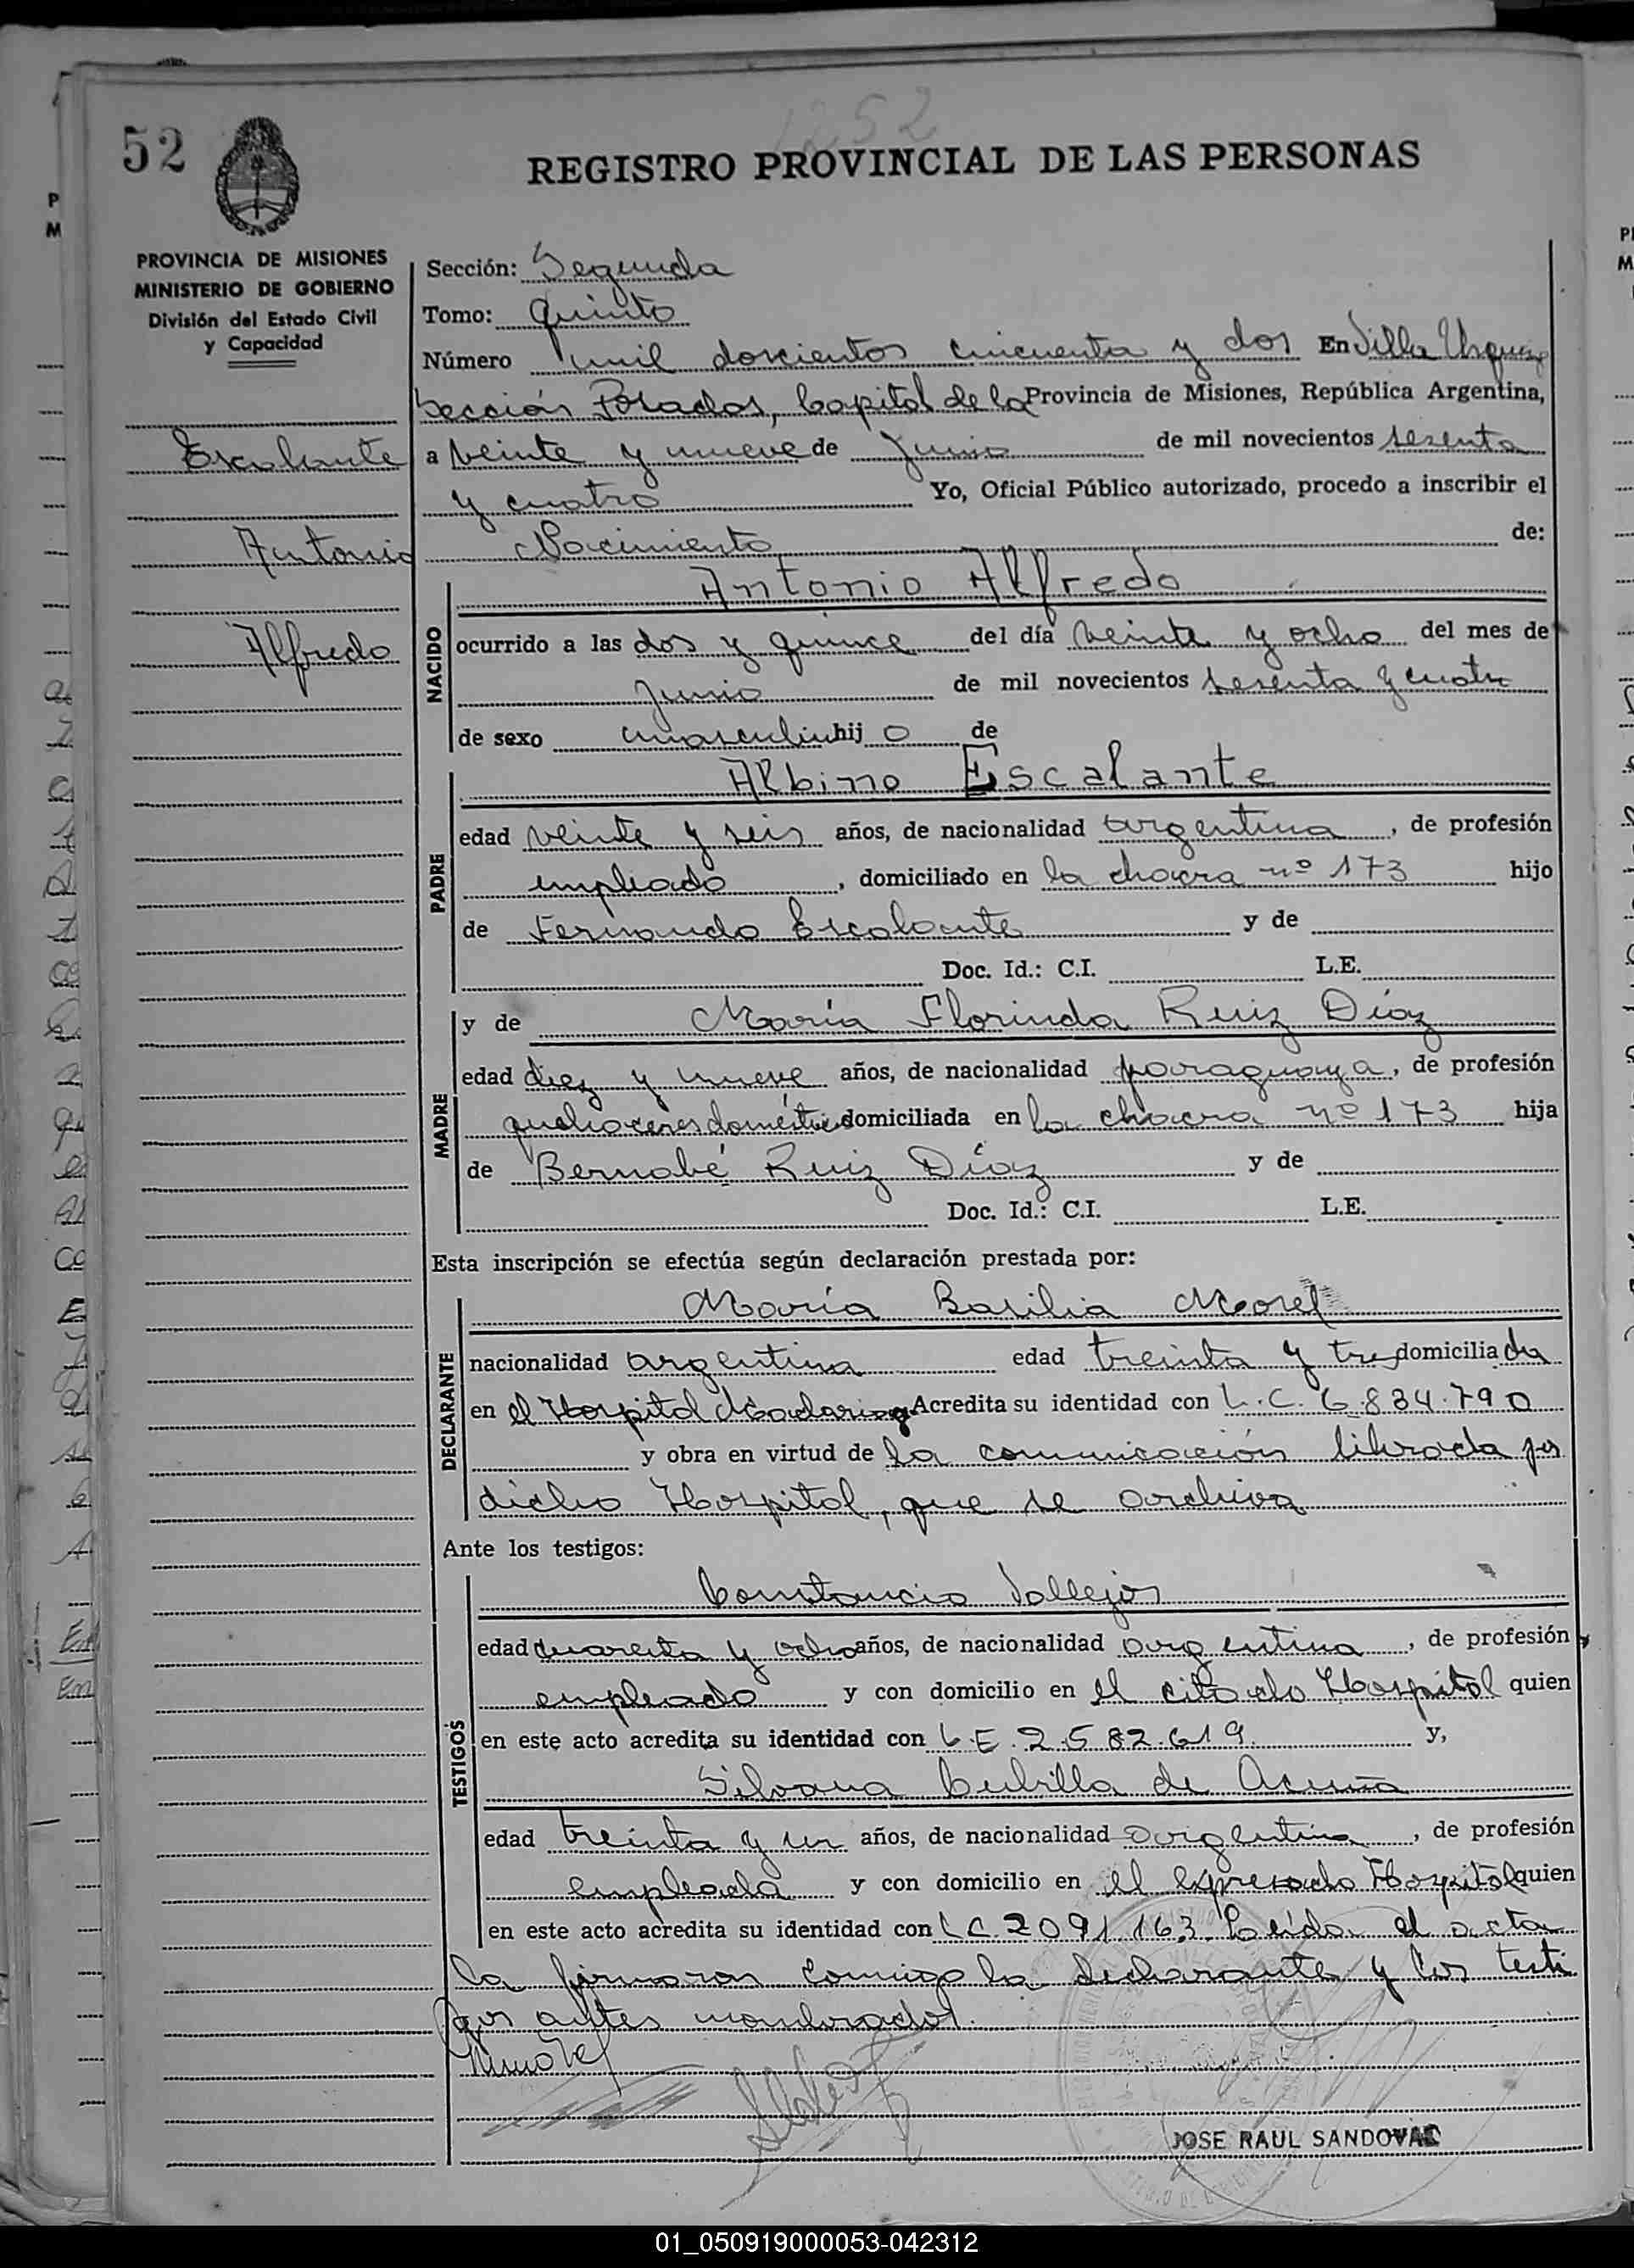 1252
52
REGISTRO PROVINCIAL DE LAS PERSONAS
PROVINCIA DE MISIONES
MINISTERIO DE GOBIERNO
División del Estado Civil
y Capacidad
Escalante
Antonio
Alfredo
Sección: Segunda
Tomo: Quinto
Número mil doscientos cincuenta y dos En Villa Urquiza
Sección Posadas, Capital de la Provincia de Misiones, República Argentina,
a veinte y nueve de junio de mil novecientos sesenta
y cuatro Yo, Oficial Público autorizado, procedo a inscribir el
Nacimiento de:
NACIDO
Antonio Alfredo
ocurrido a las dos y quince del día veinte y ocho del mes de
junio de mil novecientos sesenta y cuatro
de sexo masculino hijo de
PADRE
Albino Escalante
edad veinte y seis años, de nacionalidad argentina, de profesión
empleado, domiciliado en la chacra nº 173 hijo
de Fernando Escalante y de
Doc. Id.: C.I. L.E.
MADRE
y de María Florinda Ruiz Díaz
edad diez y nueve años, de nacionalidad paraguaya, de profesión
quehaceres domésticos domiciliada en la chacra nº 173 hija
de Bernabé Ruiz Díaz y de
Doc. Id.: C.I. L.E.
Esta inscripción se efectúa según declaración prestada por:
DECLARANTE
María Basilia Morel
nacionalidad argentina edad treinta y tres domiciliada
en el Hospital Madariaga Acredita su identidad con L.C. 6.834.790
y obra en virtud de la comunicación librada por
dicho Hospital, que se archiva
Ante los testigos:
TESTIGOS
Constancio Vallejos
edad cuarenta y ocho años, de nacionalidad argentina, de profesión
empleado y con domicilio en el citado Hospital quien
en este acto acredita su identidad con L.E. 2.582.619 y,
Silvana Cubilla de Acuña
edad treinta y un años, de nacionalidad argentina, de profesión
empleada y con domicilio en el expresado Hospital quien
en este acto acredita su identidad con L.C. 2091.163. Leída el acta
la firmaron conmigo la declarante y los testi
gos antes nombrados.
JOSE RAUL SANDOVAL
01_050919000053-042312